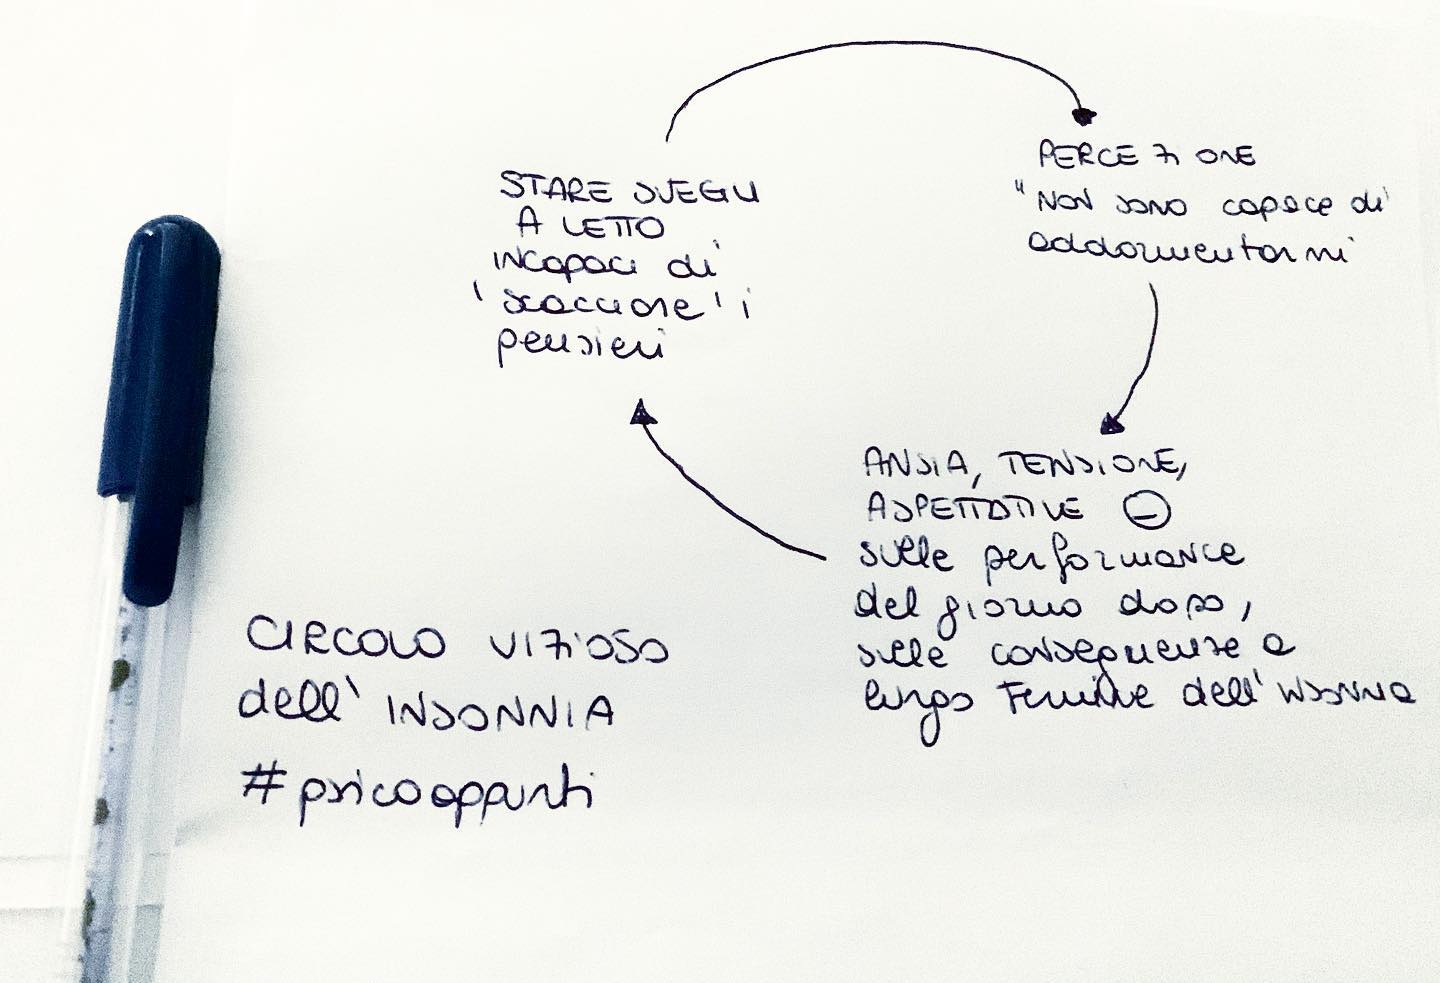 STARE SVEGLI
A LETTO
INCapaci di
'scacciare' i
pensieri
PERCEZIONE
"NON sono capace di
addormentarmi
ANSIA, TENSIONE,
ASPETTATIVE ⊖
sulle performance
del giorno dopo,
sulle conseguenze a
lungo termine dell'insonnia
CIRCOLO VIZIOSO
dell'INSONNIA
#psicoappunti